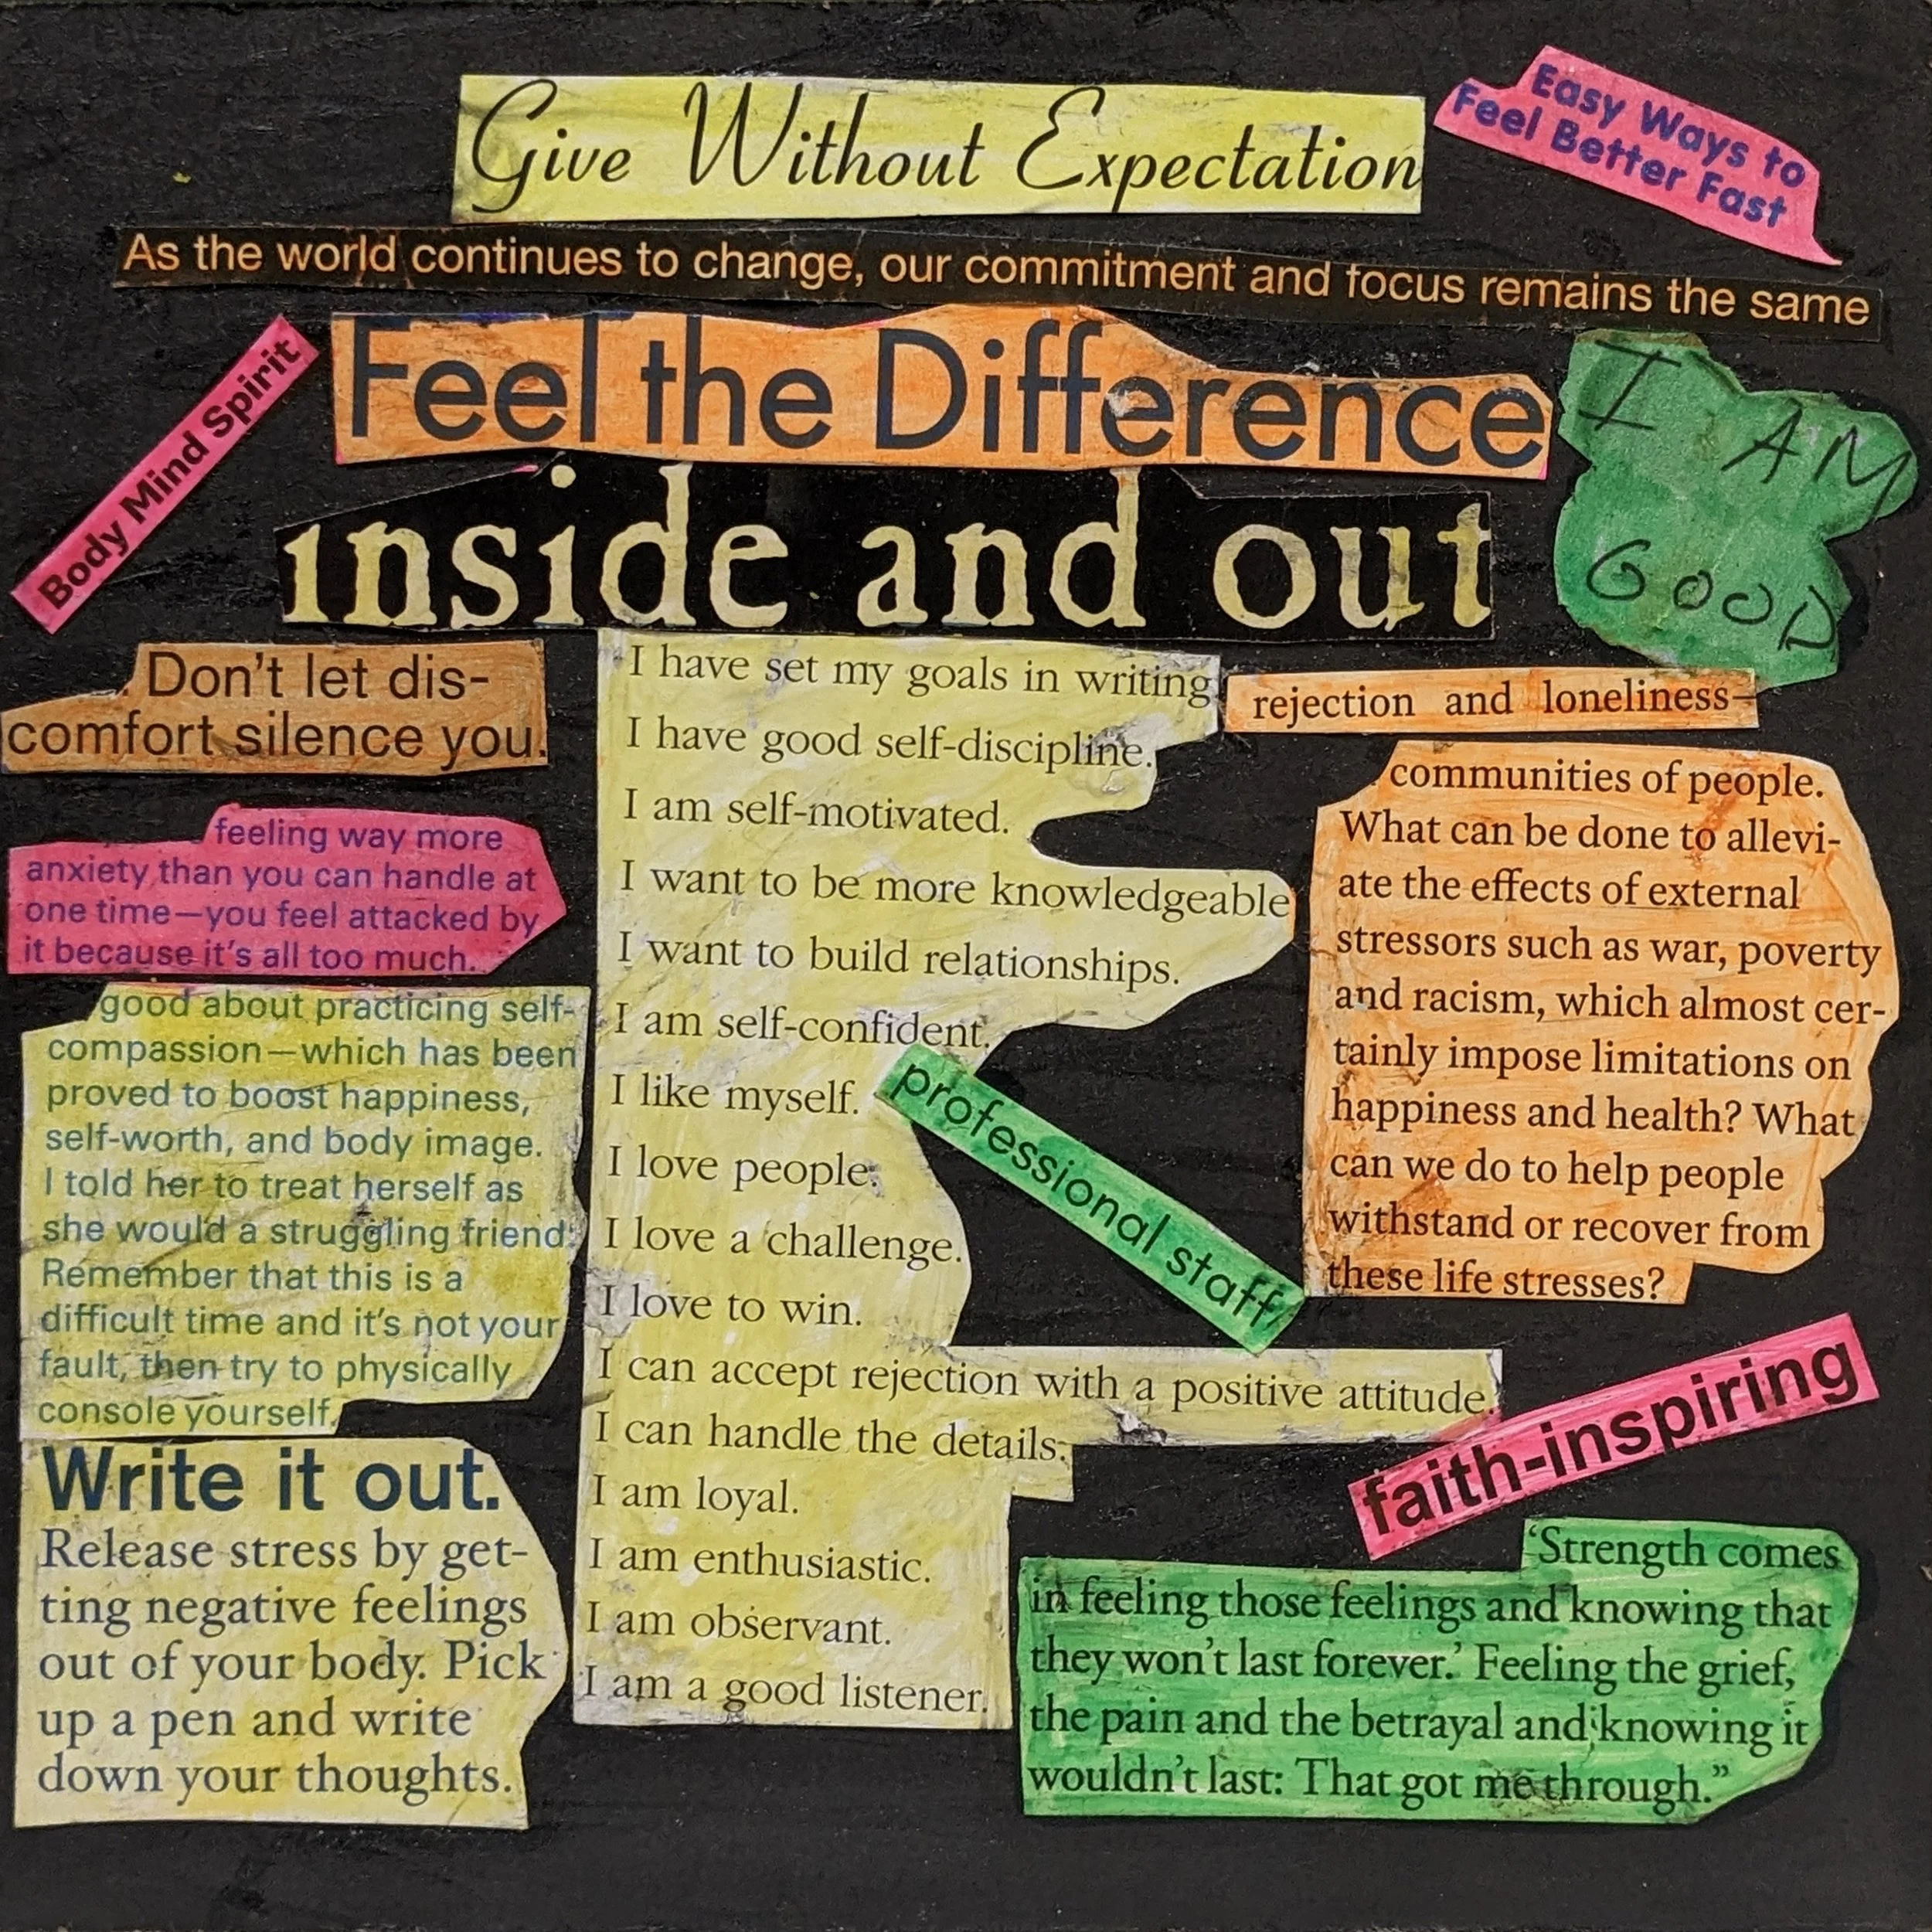 Give Without Expectation
Easy Ways to
Feel Better Fast
As the world continues to change, our commitment and focus remains the same
Body Mind Spirit
Feel the Difference
I AM
GOOD
inside and out
Don't let dis-
comfort silence you.
feeling way more
anxiety than you can handle at
one time—you feel attacked by
it because it's all too much.
good about practicing self-
compassion—which has been
proved to boost happiness,
self-worth, and body image.
I told her to treat herself as
she would a struggling friend:
Remember that this is a
difficult time and it's not your
fault, then try to physically
console yourself.
Write it out.
Release stress by get-
ting negative feelings
out of your body. Pick
up a pen and write
down your thoughts.
I have set my goals in writing
I have good self-discipline.
I am self-motivated.
I want to be more knowledgeable
I want to build relationships.
I am self-confident.
I like myself.
I love people.
I love a challenge.
I love to win.
I can accept rejection with a positive attitude.
I can handle the details.
I am loyal.
I am enthusiastic.
I am observant.
I am a good listener.
professional staff
rejection and loneliness—
communities of people.
What can be done to allevi-
ate the effects of external
stressors such as war, poverty
and racism, which almost cer-
tainly impose limitations on
happiness and health? What
can we do to help people
withstand or recover from
these life stresses?
faith-inspiring
'Strength comes
in feeling those feelings and knowing that
they won't last forever.' Feeling the grief,
the pain and the betrayal and knowing it
wouldn't last: That got me through."